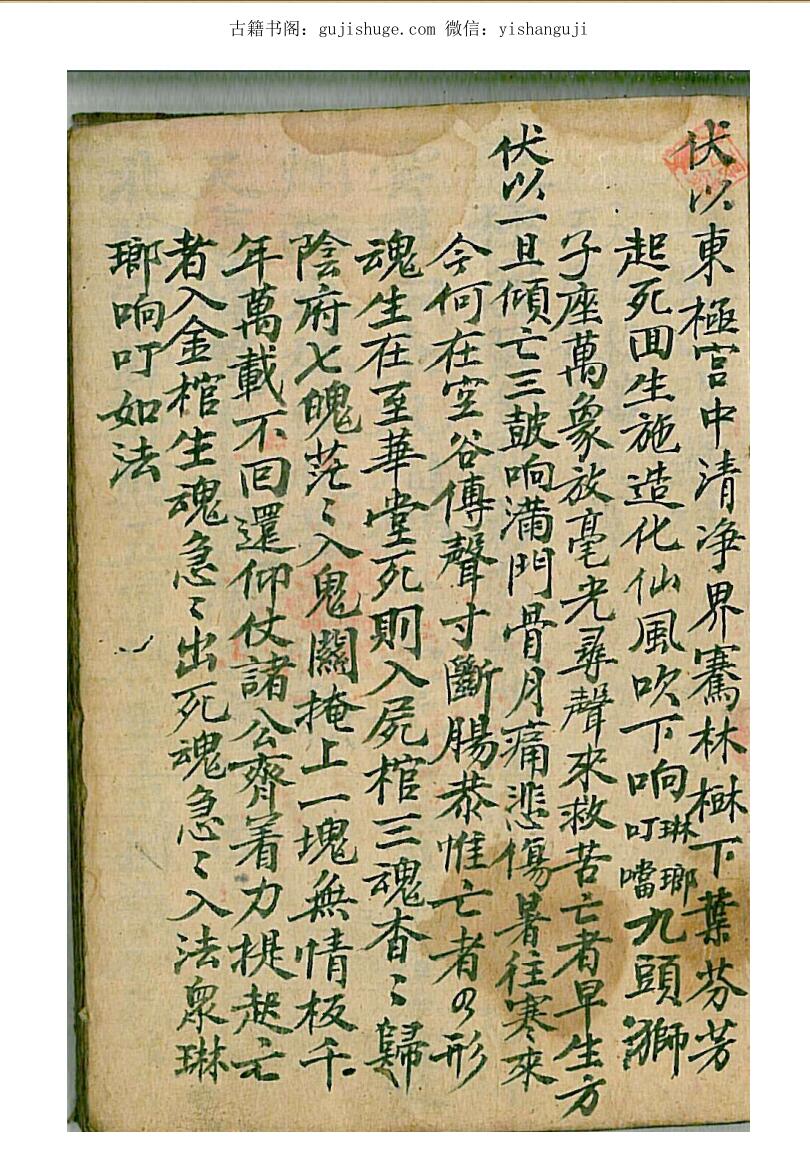 古籍书阁：gujishuge.com 微信：yishanguji
伏以東極宮中清净界騫林樹下葉芬芳
起死回生施造化仙風吹下响琳瑯叮噹九頭獅
子座萬象放毫光尋聲來救苦亡者早生方
伏以一旦傾亡三鼓响滿門骨月痛悲傷暑往寒來
今何在空谷傳聲寸斷腸恭惟亡者の形
魂生在至華堂死則入屍棺三魂杳〻歸
陰府七魄茫〻入鬼關掩上一塊無情板千
年萬載不回還仰仗諸公齊着力提起亡
者入金棺生魂急〻出死魂急〻入法衆琳
瑯响叮如法